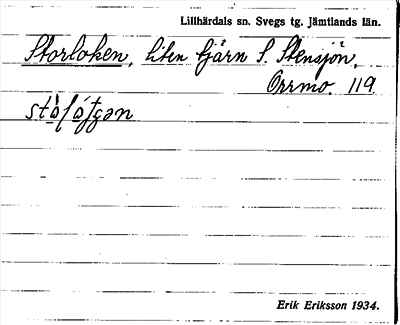 Lillhärdals sn. Svegs tg. Jämtlands län.
Storloken, liten tjärn S. Stensjön,
Orrmo. 119
Erik Eriksson 1934.